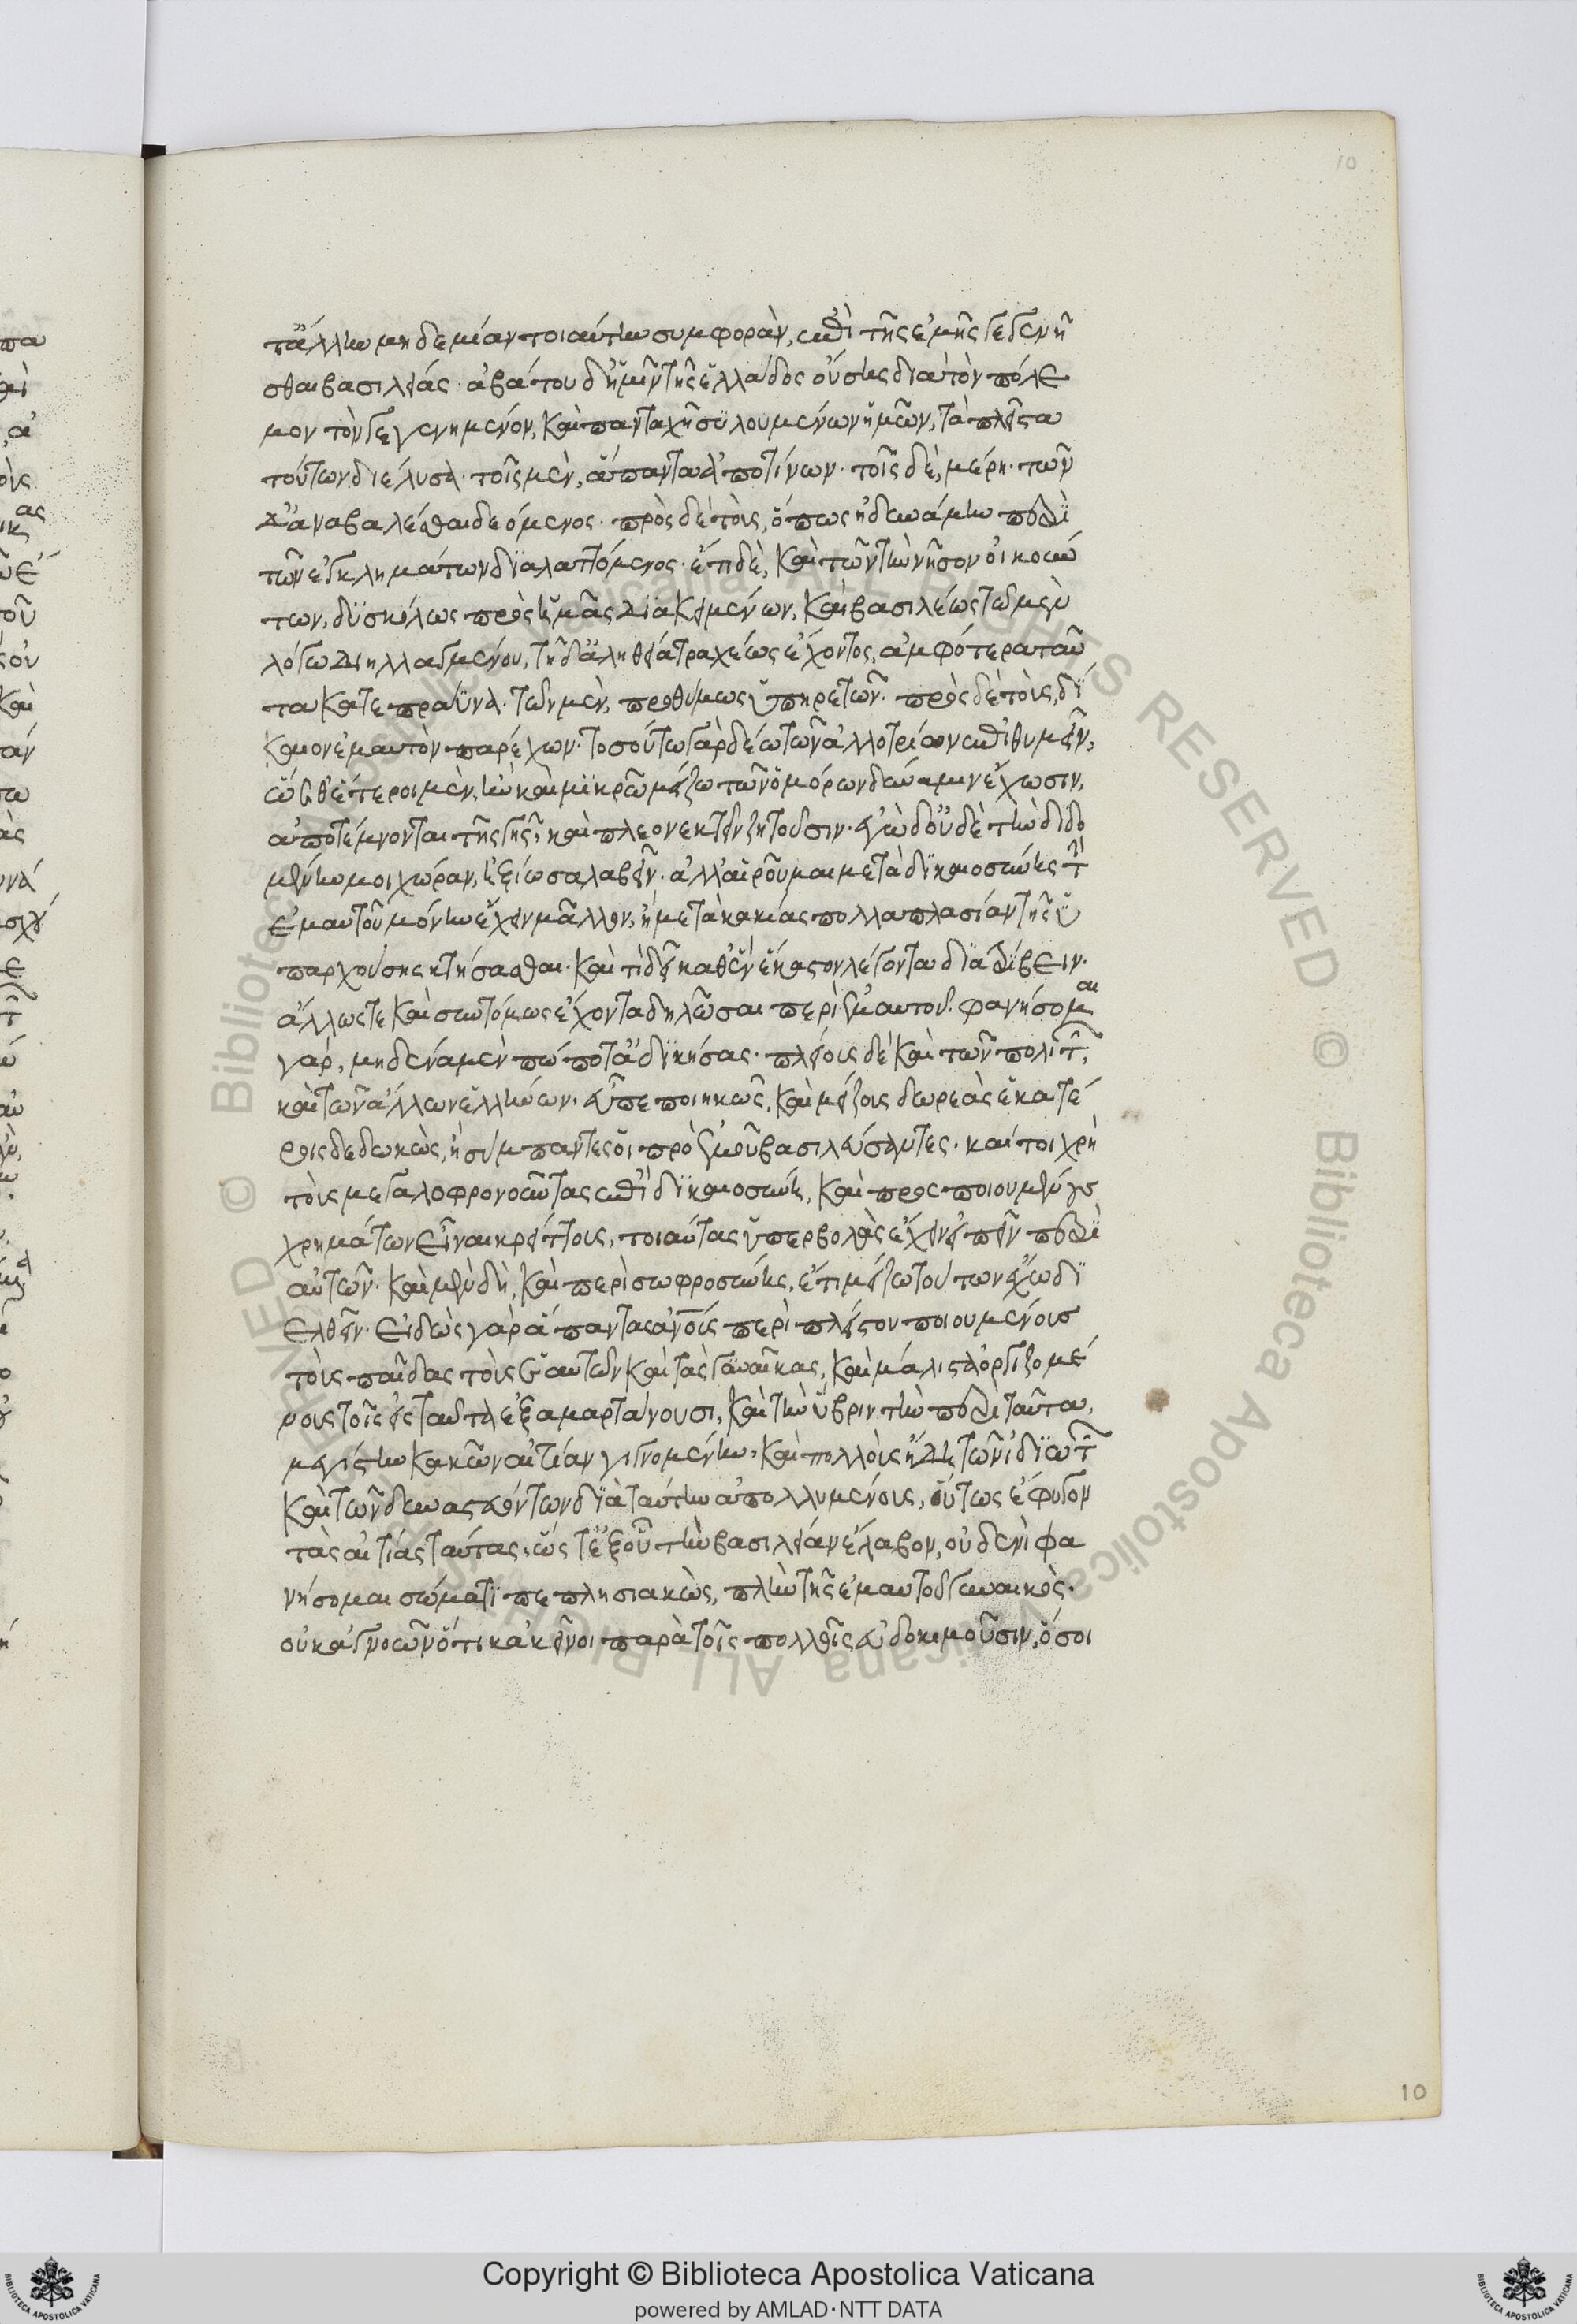 10
τἄλλην μηδεμίαν τοιαύτην συμφορὰν, ἐπὶ τῆς ἐμῆς γεγενῆ
σθαι βασιλείας· ἀβάτου δ' ἡμῖν τῆς ἑλλάδος οὔσης διὰ τὸν πόλε
μον τὸν γεγενημένον, καὶ πανταχῆ συλουμένων ἡμῶν, τὰ πλεῖστα
τούτων διέλυσα· τοῖς μὲν, ἅπαντα ἀποτίνων· τοῖς δὲ, μέρη· τῶν
δ' ἀναβαλέσθαι δεόμενος· πρὸς δὲ τοὺς, ὅπως ἠδυνάμην περὶ
τῶν ἐγκλημάτων διαλαττόμενος· ἔτι δὲ, καὶ τῶν τὴν νῆσον οἰκούν
των, δυσκόλως πρὸς ἡμᾶς διακειμένων, καὶ βασιλέως τῷ μὲν
λόγῳ διηλλαγμένου, τῇ δ' ἀληθείᾳ τραχέως ἔχοντος, ἀμφότερα ταῦ
τα κατεπράϋνα· τῷ μὲν, προθύμως ὑπηρετῶν· πρὸς δὲ τοὺς, δί
καιον ἐμαυτὸν παρέχων· τοσούτω γὰρ δέω τῶν ἀλλοτρίων ἐπιθυμεῖν,
ὥσθ' ἕτεροι μὲν, ἢν καὶ μικρῶ μείζω τῶν ὁμόρων δύναμιν ἔχωσιν,
ἀποτέμνονται τῆς γῆς, καὶ πλεονεκτεῖν ζητοῦσιν· ἐγὼ δ' οὐδὲ τὴν διδο
μένην μοι χώραν, ἠξίωσα λαβεῖν· ἀλλ' αἱροῦμαι μετὰ δικαιοσύνης τὴν
ἐμαυτοῦ μόνην ἔχειν μᾶλλον, ἢ μετὰ κακίας πολλαπλασίαν τῆς ὑ
παρχούσης κτήσασθαι· καὶ τί δεῖ καθ' ἓν ἕκαστον λέγοντα διατρίβειν·
ἄλλως τε καὶ συντόμως ἔχοντα δηλῶσαι περὶ ἐμαυτοῦ· φανήσομαι
γὰρ, μηδένα μὲν πώποτ' ἀδικήσας· πλείους δὲ καὶ τῶν πολιτῶν,
καὶ τῶν ἄλλων ἑλλήνων· εὖ πεποιηκὼς, καὶ μείζους δωρεὰς ἑκατέ
ροις δεδωκὼς, ἢ σύμπαντες οἱ πρὸ ἐμοῦ βασιλεύσαντες· καίτοι χρὴ
τοὺς μεγαλοφρονοῦντας ἐπὶ δικαιοσύνη, καὶ προσποιουμένους
χρημάτων εἶναι κρείττους, τοιαύτας ὑπερβολὰς ἔχειν εἰπεῖν περὶ
αὐτῶν· καὶ μὲν δὴ, καὶ περὶ σωφροσύνης, ἔτι μείζω τούτων ἔχω δι
ελθεῖν· εἰδὼς γὰρ ἅπαντας ἀνους περὶ πλείστου ποιουμένους
τοὺς παῖδας τοὺς αὑτῶν καὶ τὰς γυναῖκας, καὶ μάλιστα ὀργιζομέ
νους τοῖς εἰς ταῦτα ἐξαμαρτάνουσι, καὶ τὴν ὕβριν τὴν περὶ ταῦτα,
μεγίστην κακῶν αἰτίαν γιγνομένην, καὶ πολλοὺς ἤδη τῶν ἰδιωτῶν
καὶ τῶν δυναστευόντων διὰ ταύτην ἀπολλυμένους, οὕτως ἔφυγον
τὰς αἰτίας ταύτας, ὥστ' ἐξ οὗ τὴν βασιλείαν ἔλαβον, οὐδενὶ φα
νήσομαι σώματι πεπλησιακὼς, πλὴν τῆς ἐμαυτοῦ γυναικὸς·
οὐκ ἀγνοῶν ὅτι κἀκεῖνοι παρὰ τοῖς πολλοῖς εὐδοκιμοῦσιν, ὅσοι
10
Copyright © Biblioteca Apostolica Vaticana
powered by AMLAD·NTT DATA